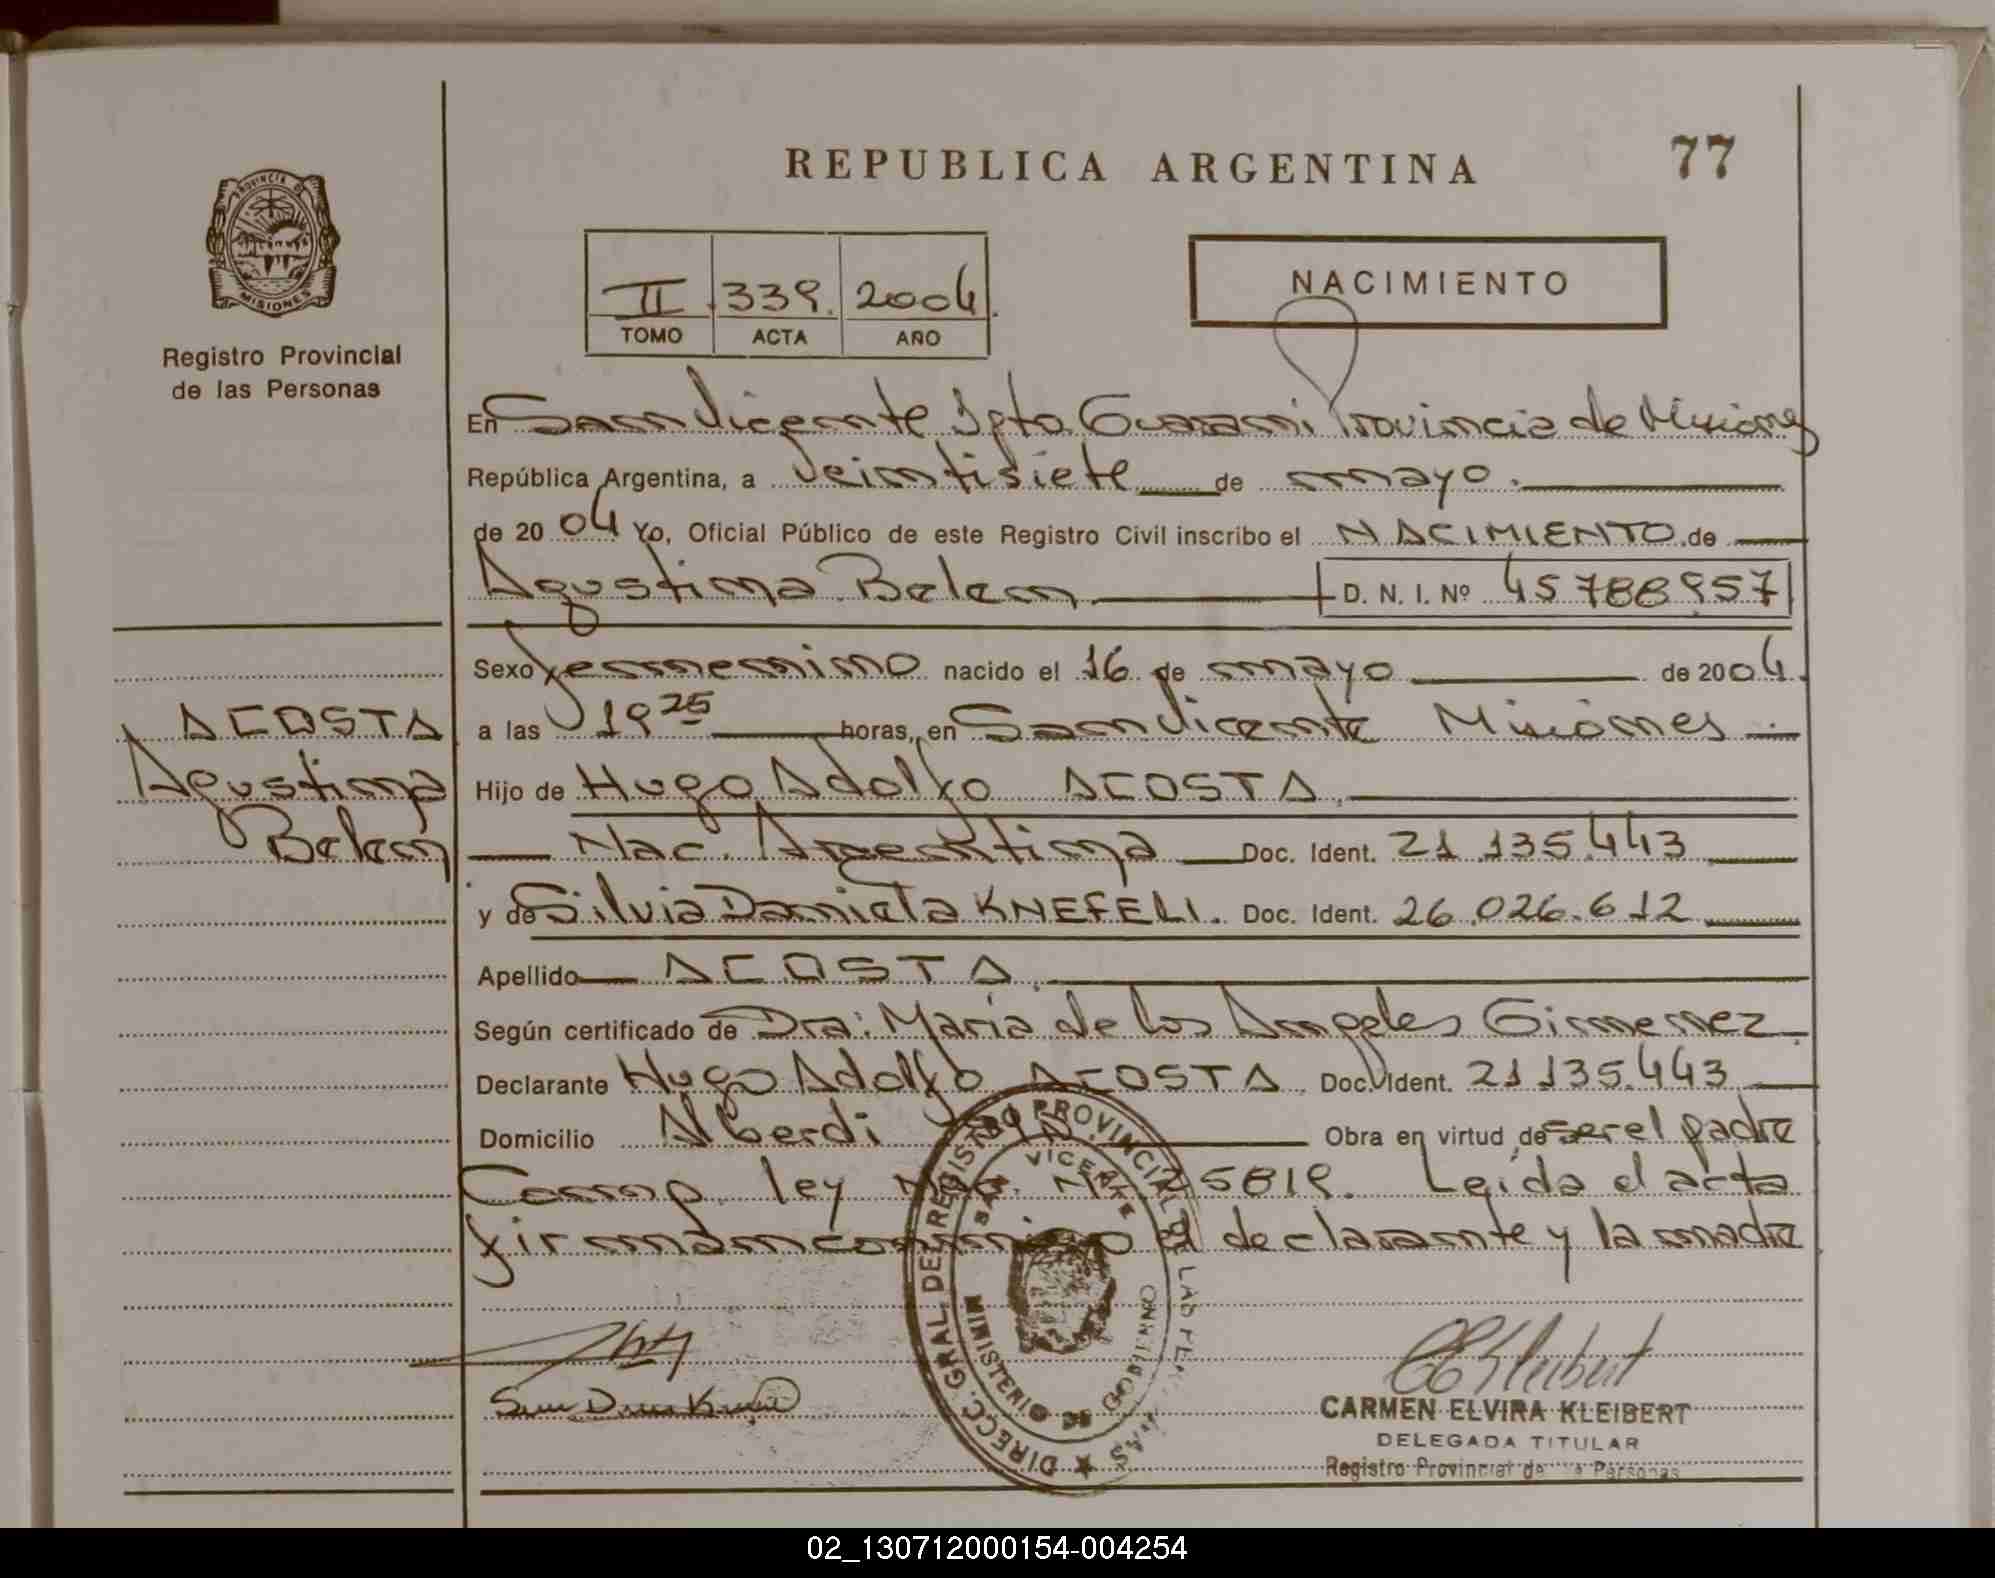 REPUBLICA ARGENTINA
77
PROVINCIA DE
MISIONES
Registro Provincial
de las Personas
II 339. 2004.
TOMO ACTA AÑO
NACIMIENTO
En San Vicente Dpto. Guarani Provincia de Misiones
República Argentina, a veintisiete de mayo.
de 2004 Yo, Oficial Público de este Registro Civil inscribo el NACIMIENTO de
Agustina Belen D. N. I. Nº 45788957
Sexo femenino nacido el 16 de mayo de 2004.
a las 19 25 horas, en San Vicente Misiones
ACOSTA
Agustina
Belen
Hijo de Hugo Adolfo ACOSTA.
Nac. Argentina Doc. Ident. 21.135.443
y de Silvia Daniela KNEFELI. Doc. Ident. 26.026.612
Apellido ACOSTA.
Según certificado de Dra: Maria de los Angeles Gimenez.
Declarante Hugo Adolfo ACOSTA Doc. Ident. 21.135.443
Domicilio Alberdi Obra en virtud de ser el padre
Comp. ley Nac. Nº 25819. Leída el acta
firman conmigo el declarante y la madre
DIRECC. GRAL. DEL REGISTRO PROVINCIAL DE LAS PERSONAS
SAN VICENTE
MINISTERIO DE GOBIERNO
CARMEN ELVIRA KLEIBERT
DELEGADA TITULAR
Registro Provincial de Personas
02_130712000154-004254